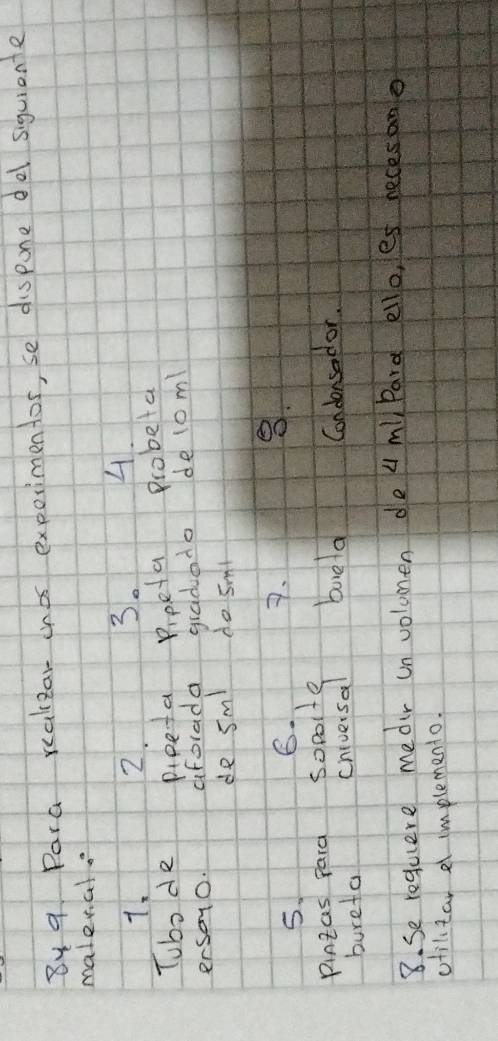 8 y 9. Para realizar unos experimentos, se dispone del siguiente
material:
1. 2. 3. 4.
Tubo de Pipeta Pipeta Probeta
ensayo. aforada graduada de 10 ml
de 5ml de 5ml
5. 6. 7. 8.
Pinzas para Soporte bureta Condensador.
bureta Universal
8. Se requiere medir un volumen de 4 ml, Para ello, es necesario
utilizar el implemento.